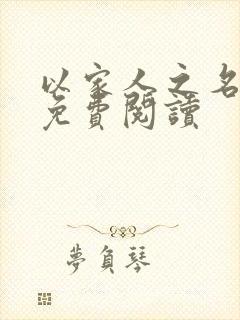 以家人之名
免費閱讀
夢負琴